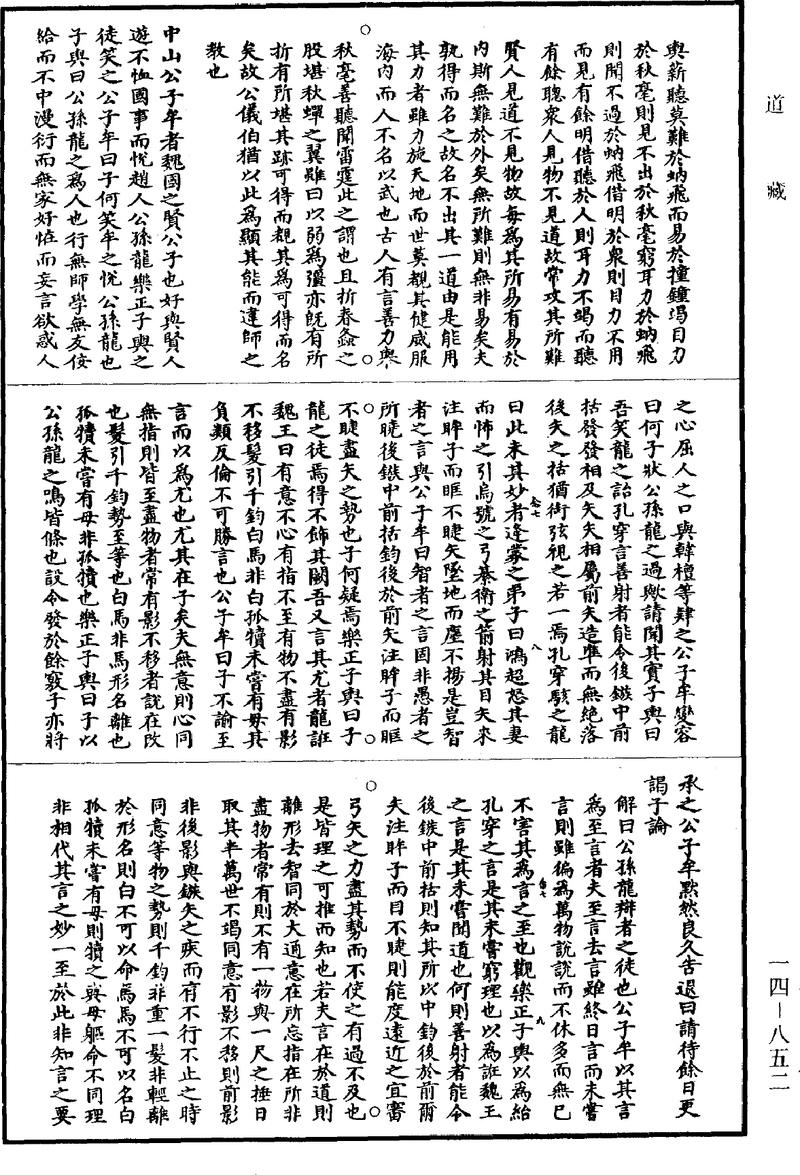 道藏
輿薪聽莫難於蚋飛而易於撞鐘竭目力
於秋毫則見不出於秋毫窮耳力於蚋飛
則聞不過於蚋飛偕明於衆則目力不用
而見有餘明偕聽於人則耳力不竭而聽
有餘聰衆人見物不見道故常攻其所難
賢人見道不見物故每爲其所易有易於
内斯無難於外矣無所難則無非易矣夫
孰得而名之故名不出其一道由是能用
其力者雖力旋天地而世莫覩其健威服
海内而人不名以武也古人有言善力舉
秋毫善聽聞雷霆此之謂也且折春螽之
股堪秋蟬之翼雖曰以弱爲彊亦既有所
折有所堪其跡可得而覩其爲可得而名
矣故公儀伯猶以此爲顯其能而違師之
教也
中山公子牟者魏國之賢公子也好與賢人
遊不恤國事而悦趙人公孫龍樂正子輿之
徒笑之公子牟曰子何笑牟之悦公孫龍也
子輿曰公孫龍之爲人也行無師學無友佞
給而不中漫衍而無家好怪而妄言欲惑人
之心屈人之口與韓檀等肄之公子牟變容
曰何子狀公孫龍之過歟請聞其實子輿曰
吾笑龍之詒孔穿言善射者能令後鏃中前
括發發相及矢矢相屬前矢造準而無絶落
後矢之括猶銜弦視之若一焉孔穿駭之龍
曰此未其妙者逢蒙之弟子曰鴻超怒其妻
而怖之引烏號之弓綦衛之箭射其目矢來
注眸子而眶不睫矢墜地而塵不揚是豈智
者之言與公子牟曰智者之言固非愚者之
所曉後鏃中前括鈞後於前矢注眸子而眶
不睫盡矢之勢也子何疑焉樂正子輿曰子
龍之徒焉得不飾其闕吾又言其尤者龍誑
魏王曰有意不心有指不至有物不盡有影
不移髮引千鈞白馬非白孤犢未嘗有母其
負類反倫不可勝言也公子牟曰子不諭至
言而以爲尤也尤其在子矣夫無意則心同
無指則皆至盡物者常有影不移者説在改
也髮引千鈞勢至等也白馬非馬形名離也
孤犢未嘗有母非孤犢也樂正子輿曰子以
公孫龍之鳴皆條也設令發於餘竅子亦將
承之公子牟默然良久告退曰請待餘日更
謁子論
解曰公孫龍辯者之徒也公子牟以其言
爲至言者夫至言去言雖終日言而未嘗
言則雖徧爲萬物説説而不休多而無已
不害其爲言之至也觀樂正子輿以爲給
孔穿之言是其未嘗窮理也以爲誑魏王
之言是其未嘗聞道也何則善射者能令
後鏃中前括則知其所以中鈞後於前爾
矢注眸子而目不睫則能度遠近之宜審
弓矢之力盡其勢而不使之有過不及也
是皆理之可推而知也若夫言在於道則
離形去智同於大通意在所忘指在所非
盡物者常有則不有一物與一尺之捶日
取其半萬世不竭同意有影不移則前影
非後影與鏃矢之疾而有不行不止之時
同意等物之勢則千鈞非重一髮非輕離
於形名則白不可以命馬馬不可以名白
孤犢未嘗有母則犢之與母軀命不同理
非相代其言之妙一至於此非知言之要
一四-八五二